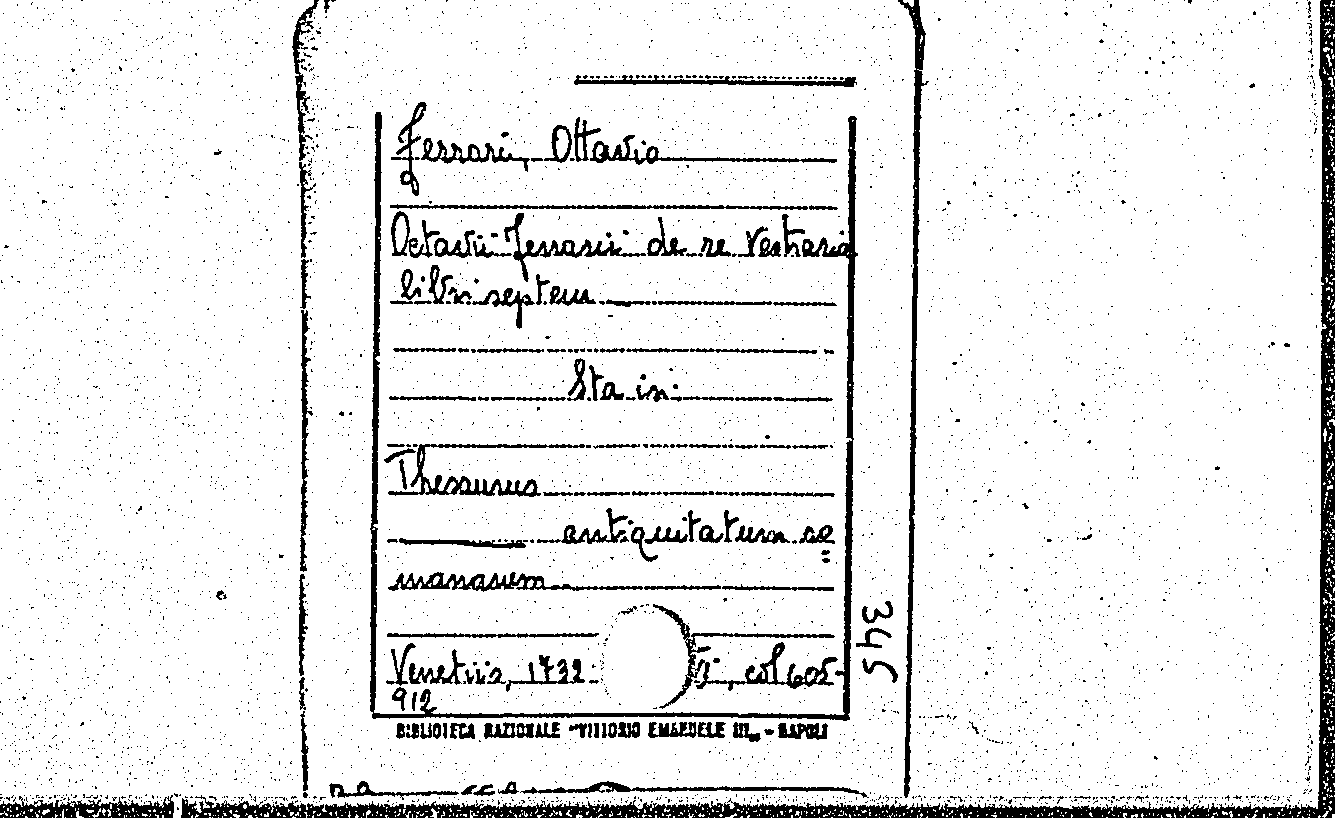 Ferrari, Ottavio
Octavii Ferrarii de re Vestiaria
libri septem
Sta in:
Thesaurus
antiquitatum ro=
manarum
Venetiis, 1732 , col 605-
912
345
BIBLIOTECA NAZIONALE "VITTORIO EMANUELE III„ - NAPOLI